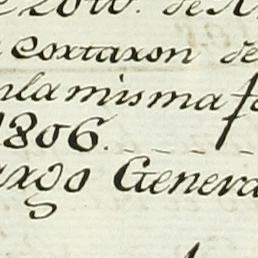 20 W. de
Coxtaxon de
nla misma fo
1806.
axgo Genera